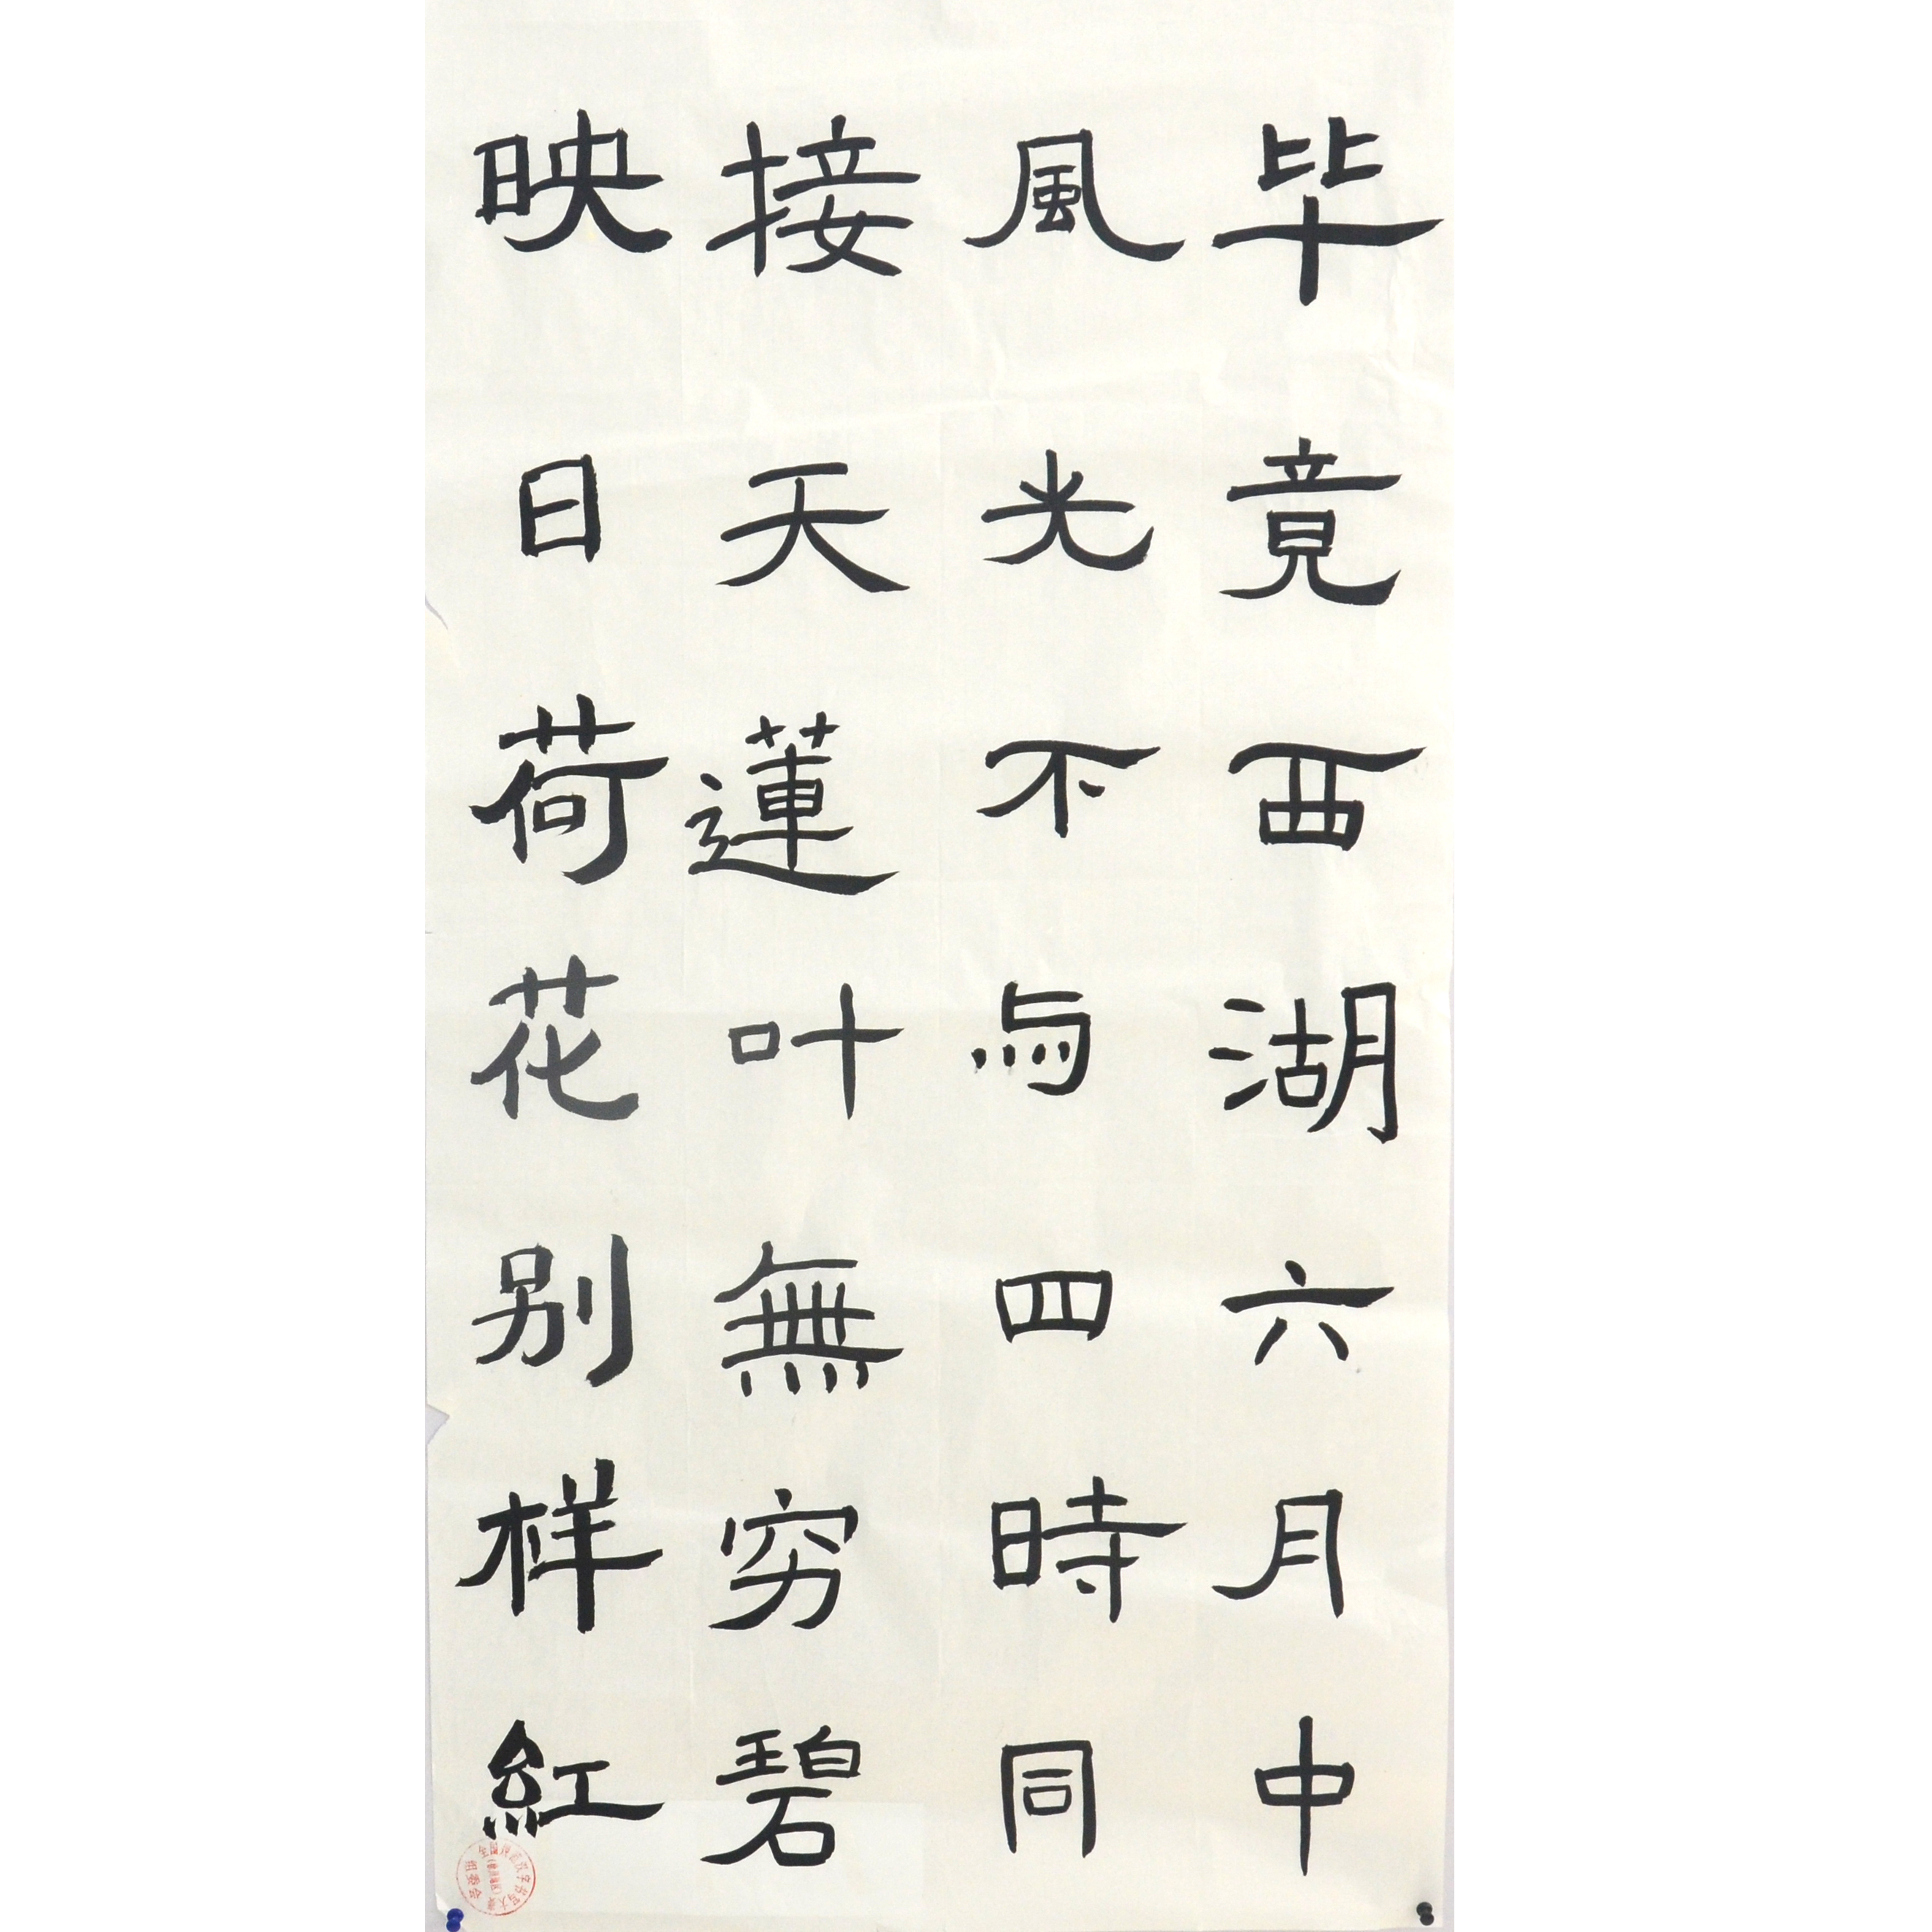 毕竟西湖六月中
風光不与四時同
接天蓮叶無穷碧
映日荷花别样紅